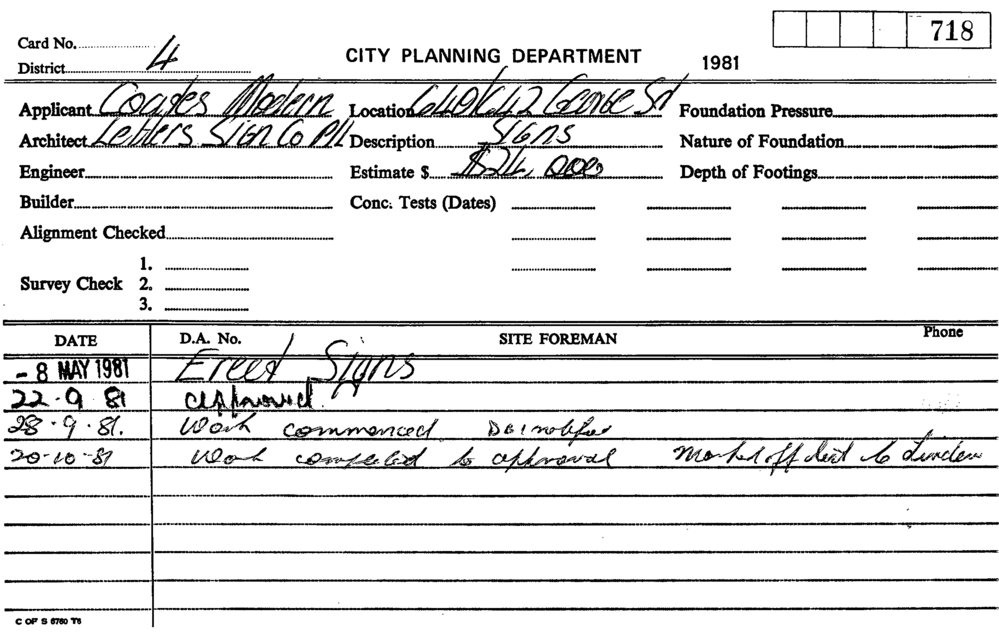 718
Card No.
District 4
CITY PLANNING DEPARTMENT 1981
Applicant Coates Modern Location 640/642 George St Foundation Pressure
Architect Letters Sign Co P/L Description Signs Nature of Foundation
Engineer Estimate $ $24,000 Depth of Footings
Builder Conc. Tests (Dates)
Alignment Checked
1.
Survey Check 2.
3.
DATE D.A. No. SITE FOREMAN Phone
- 8 MAY 1981 Erect Signs
22.9 81 Approved.
28.9.81. Work commenced
20-10-81 Work completed to approval Marked off
C OF S 6760 T6